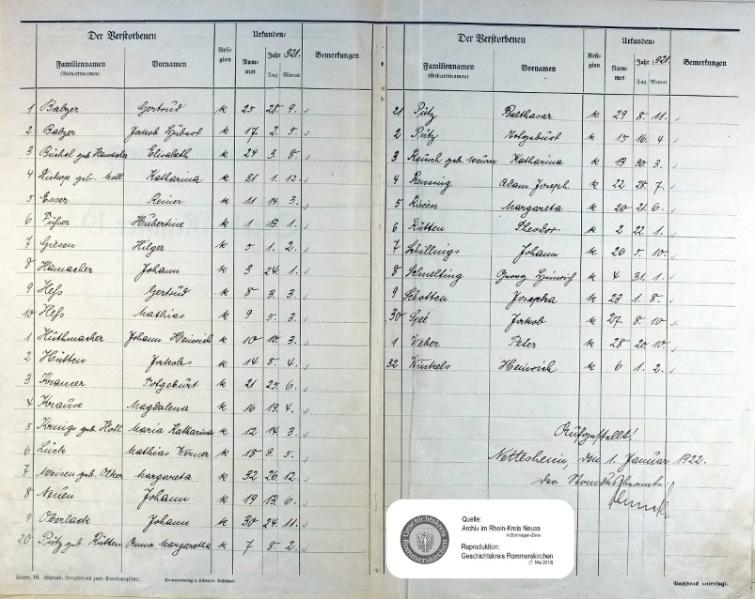 Der Verstorbenen Reli- gion Urkunden- Bemerkungen
Familiennamen (Geburtsnamen) Vornamen Num- mer Jahr 1921. Tag Monat
1 Balzer Gertrud k 25 28. 9.
2 Balzer Jakob Hubert k 17 2. 5.
3 Büchel geb. Hamacher Elisabeth k 24 3. 8.
4 geb. Moll Katharina k 31 1. 12.
5 Esser Reiner k 11 14. 3.
6 Füßer Hubertine k 1 13. 1.
7 Giesen Hilger k 5 1. 2.
8 Hamacher Johann k 3 24. 1.
9 Heß Gertrud k 8 3. 3.
10 Heß Mathias k 9 5. 3.
1 Hüthmacher Johann Heinrich k 10 10. 3.
2 Hütten Jakob k 14 8. 4.
3 Kramer Totgeburt k 21 23. 6.
4 Krause Magdalena k 16 19. 4.
5 geb. Maria Katharina k 12 14. 3.
6 Lück Mathias Werner k 18 9. 5.
7 geb. Margareta k 32 26. 12.
8 Neuen Johann k 19 13. 6.
9 Oberlack Johann k 30 24. 11.
20 Pütz geb. Rütten Anna Margaretha k 7 8. 2.
Der Verstorbenen Reli- gion Urkunden- Bemerkungen
Familiennamen (Geburtsnamen) Vornamen Num- mer Jahr 1921. Tag Monat
21 Pütz Balthasar k 29 8. 11.
2 Pütz Totgeburt k 15 16. 4.
3 Rausch geb. Katharina k 13 30. 3.
4 Rensing Adam Joseph k 22 28. 7.
5 Margareta k 20 21. 6.
6 Rütten Theodor k 2 22. 1.
7 Schillings Johann k 26 5. 10.
8 Schmelting Georg Heinrich k 4 31. 1.
9 Schotten Josepha k 23 1. 8.
30 Jakob k 27 8. 10.
1 Weber Peter k 28 20. 10.
32 Winkels Heinrich k 6 1. 2.
Aufgestellt!
Nettesheim, den 1. Januar 1922.
Der Standesbeamte
Quelle:
Archiv im Rhein-Kreis Neuss
in Dormagen-Zons
Reproduktion:
Geschichtskreis Rommerskirchen
(7. Mai 2013)
Nachdruck untersagt.